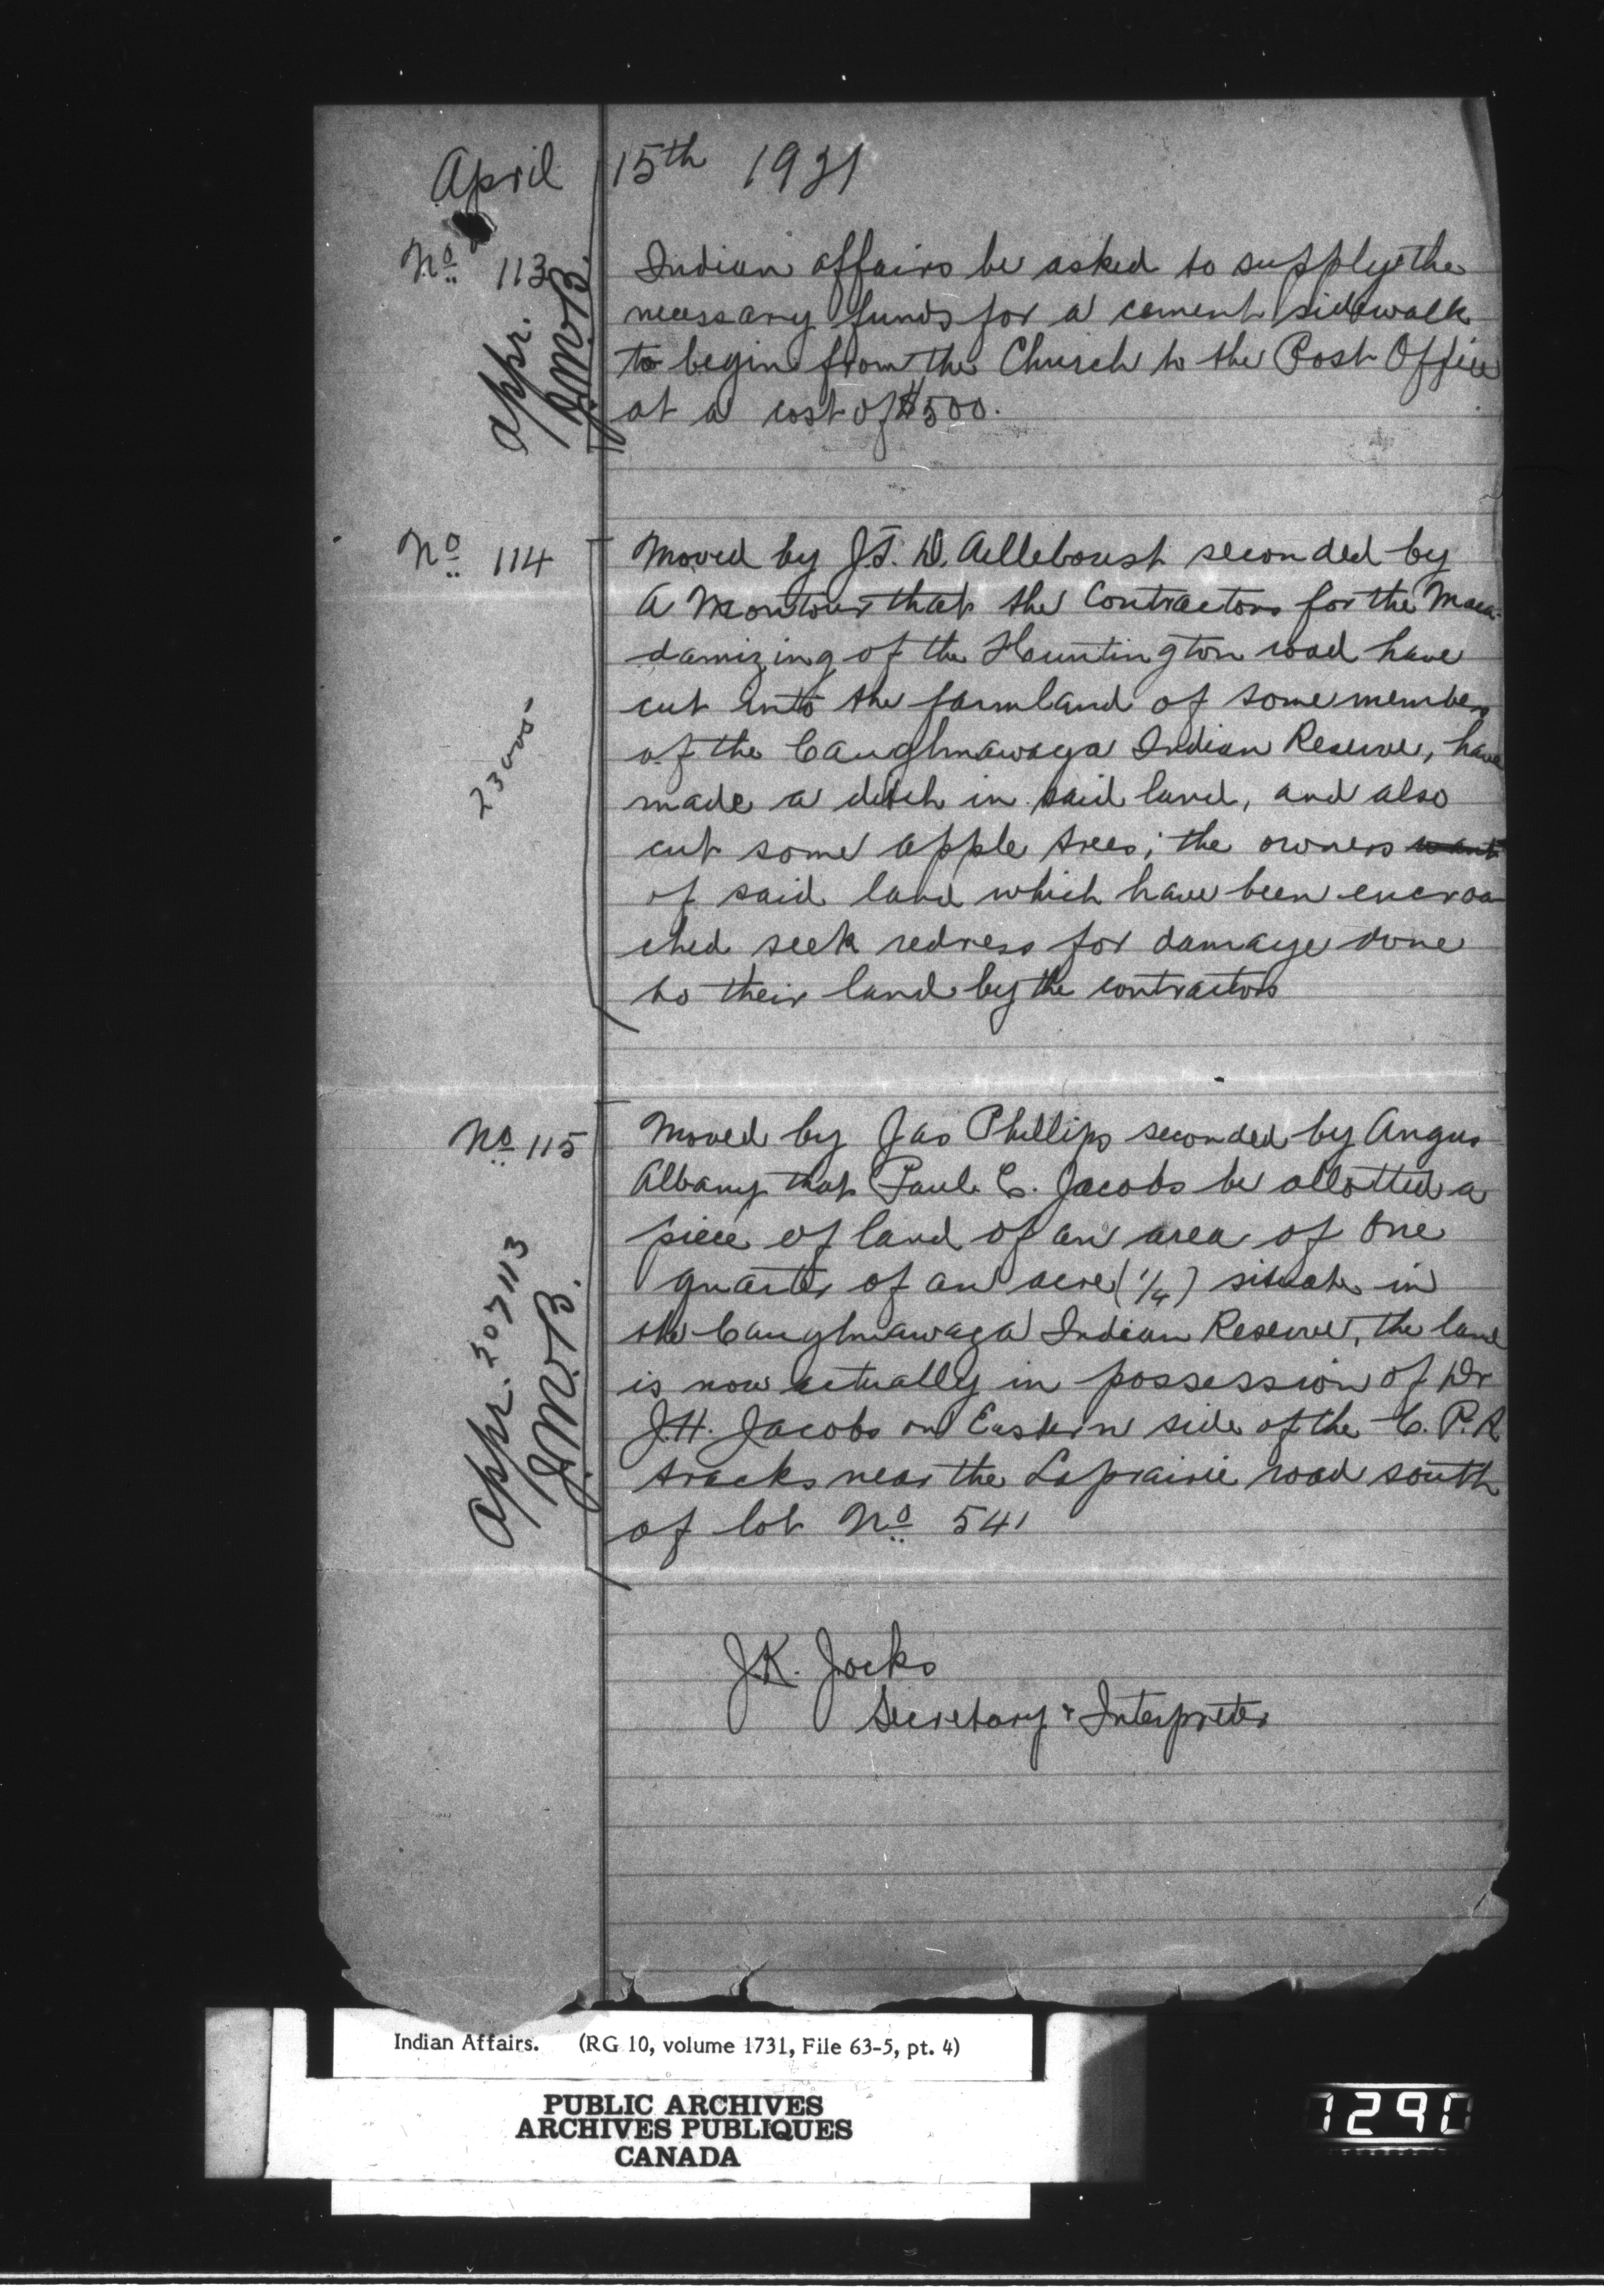 April 15th 1931
No 113 Indian affairs be asked to supply the
necessary funds for a cement sidewalk
to begin from the Church to the Post Office
at a cost of $500.
appr.
No 114 Moved by J.T. D. Ailleboust seconded by
A Montour that the Contractors for the Maca-
damizing of the Hountington road have
cut into the farmland of some members
of the Caughnawaga Indian Reserve, have
made a ditch in said land, and also
cut some apple trees; the owners want
of said land which have been encroa
ched seek redress for damage done
to their land by the contractors
No 115 Moved by Jas Phillips seconded by Angus
Albany that Paul C. Jacobs be allotted a
piece of land of an area of One
quarter of an acre (1/4) situate in
the Caughnawaga Indian Reserve, the land
is now actually in possession of Dr
J.H. Jacobs on Eastern side of the C.P.R
tracks near the Laprairie road south
of lot No 541
appr.
J.K. Jocks
Secretary & Interpreter
Indian Affairs. (RG 10, volume 1731, File 63-5, pt. 4)
PUBLIC ARCHIVES
ARCHIVES PUBLIQUES
CANADA
1290